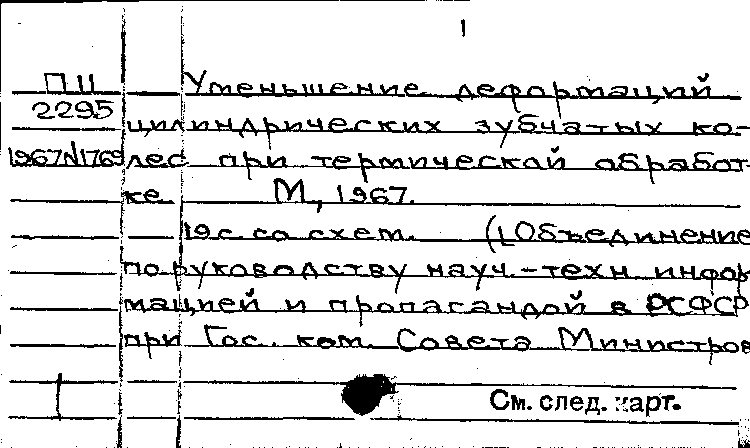 1
ПII Уменьшение деформаций
2295 цилиндрических зубчатых ко-
1967N1769 лес при термической обработ-
ке М, 1967.
19 с. со схем. (Объединение
по руководству науч.-техн. инфор
мацией и пропагандой в РСФСР
при Гос. ком. Совета Министров
См. след. карт.